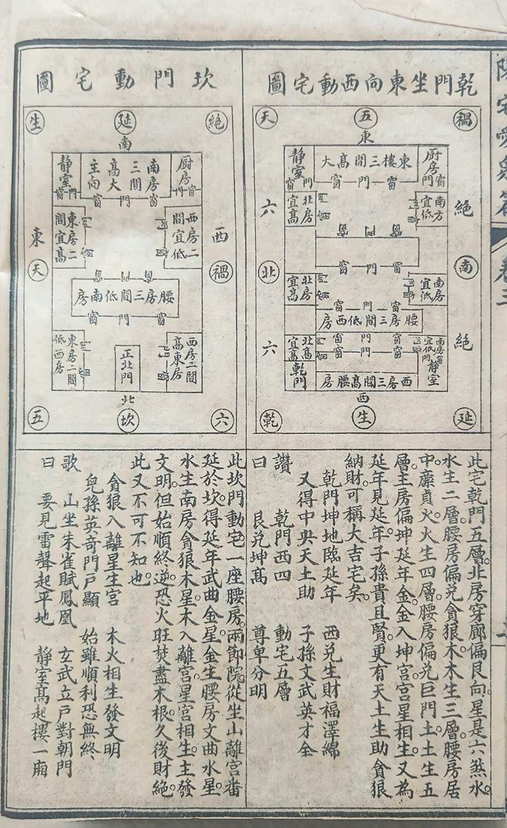 乾門坐東向西動宅圖
天
五
禍
東
靜室
門
窗
東樓三間高大
窗
門
窗
厨房
門
窗
六
北房宜高
南方宜低
絕
北
北房宜高
南房宜低
南
門
窗
窗
腰房三間低西房
窗
門
窗
六
北房宜高
乾門
絕
靜室
西房三間高腰房
西
乾
生
延
坎門動宅圖
生
延
絕
南
靜室
門
窗
南房三間高大主向
窗
門
窗
厨房
門
窗
東房二間宜高
西房二間宜低
東
天
西
禍
腰房三間低南房
窗
門
窗
東房二間低西房
正北門
西房二間高東房
北
五
坎
六
此宅乾門五層北房穿廊偏艮向星是六煞水
水生二層腰房偏兌貪狼木木生三層腰房居
中廉貞火火生四層腰房偏兌巨門土土生五
層主房偏坤延年金金入坤宮宮星相生又為
延年見延年子孫貴且賢更有天土生助貪狼
納財可稱大吉宅矣
乾門坤地臨延年　西兌生財福澤綿
又得中央天土助　子孫文武英才全
讚　乾門西四　動宅五層
曰　艮兌坤高　尊卑分明
此坎門動宅一座腰房兩節院從坐山離宮番
延於坎得延年武曲金星金生腰房文曲水星
水生南房貪狼木星木入離宮星宮相生主發
文明但始順終逆恐火旺焚盡木根久後財絕
此又不可不知也
貪狼入離星生宮　木火相生發文明
兒孫英奇門戶顯　始雖順利恐無終
歌　山坐朱雀賦鳳凰　玄武立戶對朝門
曰　要見雷聲起平地　靜室高起樓一廂
陽宅愛眾篇
卷二